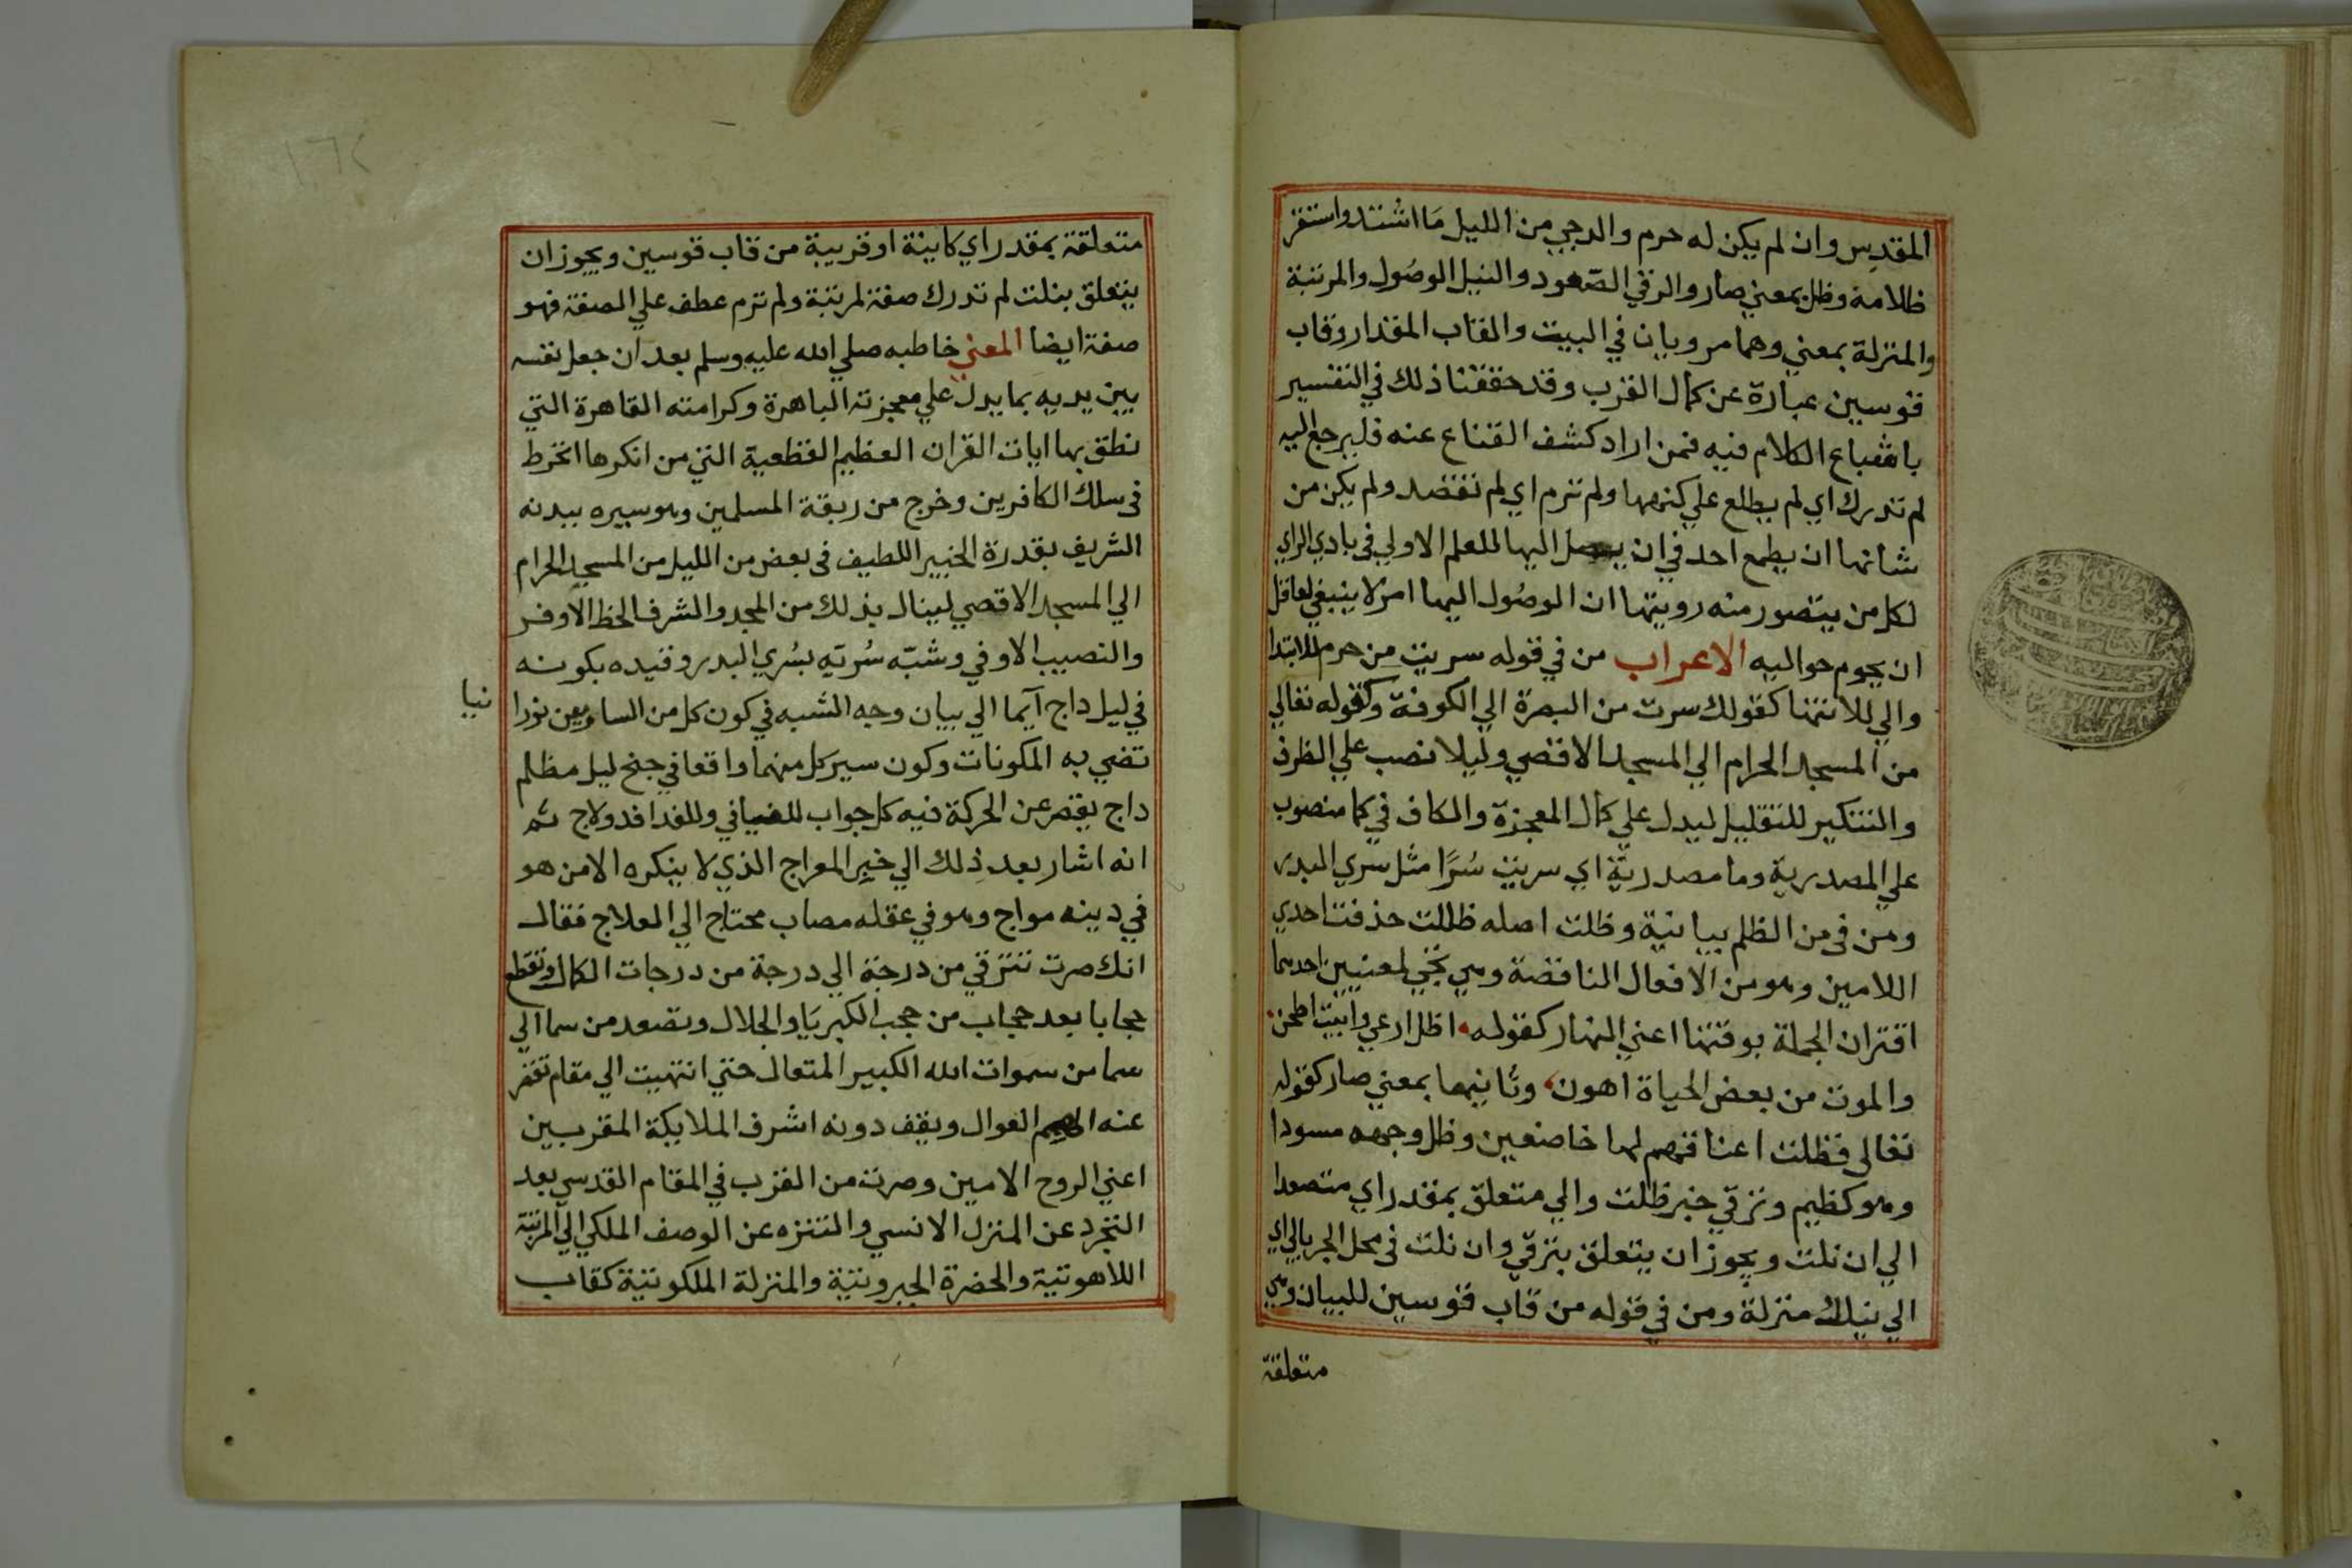 المقدس وان لم يكن له حرم والدجي من الليل ما اشتد واستقر
ظلامه وظل بمعني صار والرقي الصعود والنيل الوصول والمرتبة
والمنزلة بمعني وهما مرويان في البيت والقاب المقدار وقاب
قوسين عبارة عن كمال القرب وقد حققنا ذلك في التفسير
باشباع الكلام فيه فمن اراد كشف القناع عنه فليرجع اليه
لم تدرك اي لم يطلع علي كنهها ولم ترم اي لم تقصد ولم يكن من
شانها ان يطمع احد في ان يصل اليها للعلم الاولي في بادي الراي
لكل من يتصور منه رويتها ان الوصول اليها امر لا ينبغي لعاقل
ان يحوم حواليه الاعراب من في قوله سريت من حرم للابتدا
والي للانتها كقولك سرت من البصرة الي الكوفة وكقوله تعالي
من المسجد الحرام الي المسجد الاقصي وليلا نصب علي الظرف
والتنكير للتقليل ليدل علي كمال المعجزة والكاف في كما منصوب
علي المصدرية وما مصدرية اي سريت سرًا مثل سري البدر
ومن في من الظلم بيانية وظلت اصله ظللت حذفت احدي
اللامين وهو من الافعال الناقضة وهي تجي لمعنيين احدهما
اقتران الجملة بوقتها اعني النهار كقوله اظل ارعي وابيت اطحن
والموت من بعض الحياة اهون وثانيها بمعني صار كقوله
تعالى فظلت اعناقهم لها خاضعين وظل وجهه مسودا
وهو كظيم وترقي خبر ظلت والي متعلق بمقدر اي متصعدا
الي ان نلت ويجوز ان يتعلق بترقي وان نلت في محل الجر بالي اي
الي نيلك منزلة ومن في قوله من قاب قوسين للبيان وهي
متعلقة
متعلقة بمقدر اي كاينة او قريبة من قاب قوسين ويجوز ان
يتعلق بنلت لم تدرك صفة لمرتبة ولم ترم عطف علي الصفة فهو
صفة ايضا المعني خاطبه صلي الله عليه وسلم بعد ان جعل نفسه
بين يديه بما يدل علي معجزته الباهرة وكرامته القاهرة التي
نطق بها ايات القران العظيم القطعية التي من انكرها انخرط
في سلك الكافرين وخرج من ربقة المسلمين وهو سيره ببدنه
الشريف بقدرة الخبير اللطيف في بعض من الليل من المسجد الحرام
الي المسجد الاقصي لينال بذلك من المجد والشرف الحظ الاوفر
والنصيب الاوفي وشبّه سُريه بسُري البدر وقيده بكونه
في ليل داج آيما الي بيان وجه الشبه في كون كل من الساريين نورا
نيا
تضي به المكونات وكون سير كل منهما واقعا في جنح ليل مظلم
داج يقصر عن الحركة فيه كل جواب للفيافي وللفدافد ولاج ثم
انه اشار بعد ذلك الي خبر المعراج الذي لا ينكره الا من هو
في دينه مواج وهو في عقله مصاب محتاج الي العلاج فقال
انك صرت تترقي من درجة الي درجة من درجات الكمال وتقطع
حجابا بعد حجاب من حجب الكبرياء والجلال وتصعد من سما الي
سما من سموات الله الكبير المتعال حتي انتهيت الي مقام تقصر
عنه الهمم العوال ويقف دونه اشرف الملايكة المقربين
اعني الروح الامين وصرت من القرب في المقام القدسي بعد
التجرد عن المنزل الانسي والتنزه عن الوصف الملكي الي المرتبة
اللاهوتية والحضرة الجبروتية والمنزلة الملكوتية كقاب